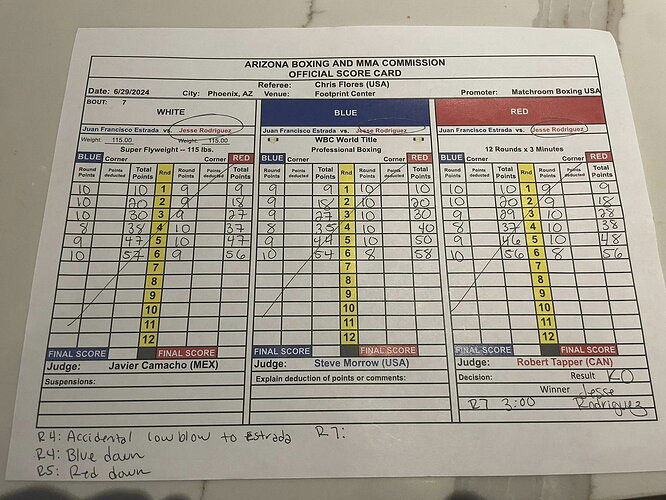 ARIZONA BOXING AND MMA COMMISSION
OFFICIAL SCORE CARD
Referee: Chris Flores (USA)
Date: 6/29/2024 City: Phoenix, AZ Venue: Footprint Center Promoter: Matchroom Boxing USA
BOUT: 7
WHITE BLUE RED
Juan Francisco Estrada vs. Jesse Rodriguez Juan Francisco Estrada vs. Jesse Rodriguez Juan Francisco Estrada vs. Jesse Rodriguez
Weight: 115.00 Weight: 115.00 WBC World Title
Super Flyweight -- 115 lbs. Professional Boxing 12 Rounds x 3 Minutes
BLUE Corner Corner RED BLUE Corner Corner RED BLUE Corner Corner RED
Round Points Points deducted Total Points Rnd Round Points Points deducted Total Points Round Points Points deducted Total Points Rnd Round Points Points deducted Total Points Round Points Points deducted Total Points Rnd Round Points Points deducted Total Points
10 10 1 9 9 9 9 1 10 10 10 10 1 9 9
10 20 2 9 18 9 18 2 10 20 10 20 2 9 18
10 30 3 9 27 9 27 3 10 30 9 29 3 10 28
8 38 4 10 37 8 35 4 10 40 8 37 4 10 38
9 47 5 10 47 9 44 5 10 50 9 46 5 10 48
10 57 6 9 56 10 54 6 8 58 10 56 6 8 56
7 7 7
8 8 8
9 9 9
10 10 10
11 11 11
12 12 12
FINAL SCORE FINAL SCORE FINAL SCORE FINAL SCORE FINAL SCORE FINAL SCORE
Judge: Javier Camacho (MEX) Judge: Steve Morrow (USA) Judge: Robert Tapper (CAN)
Suspensions: Explain deduction of points or comments: Decision: Result KO
Winner Jesse
R7 3:00 Rodriguez
R4: Accidental low blow to Estrada R7:
R4: Blue down
R5: Red down